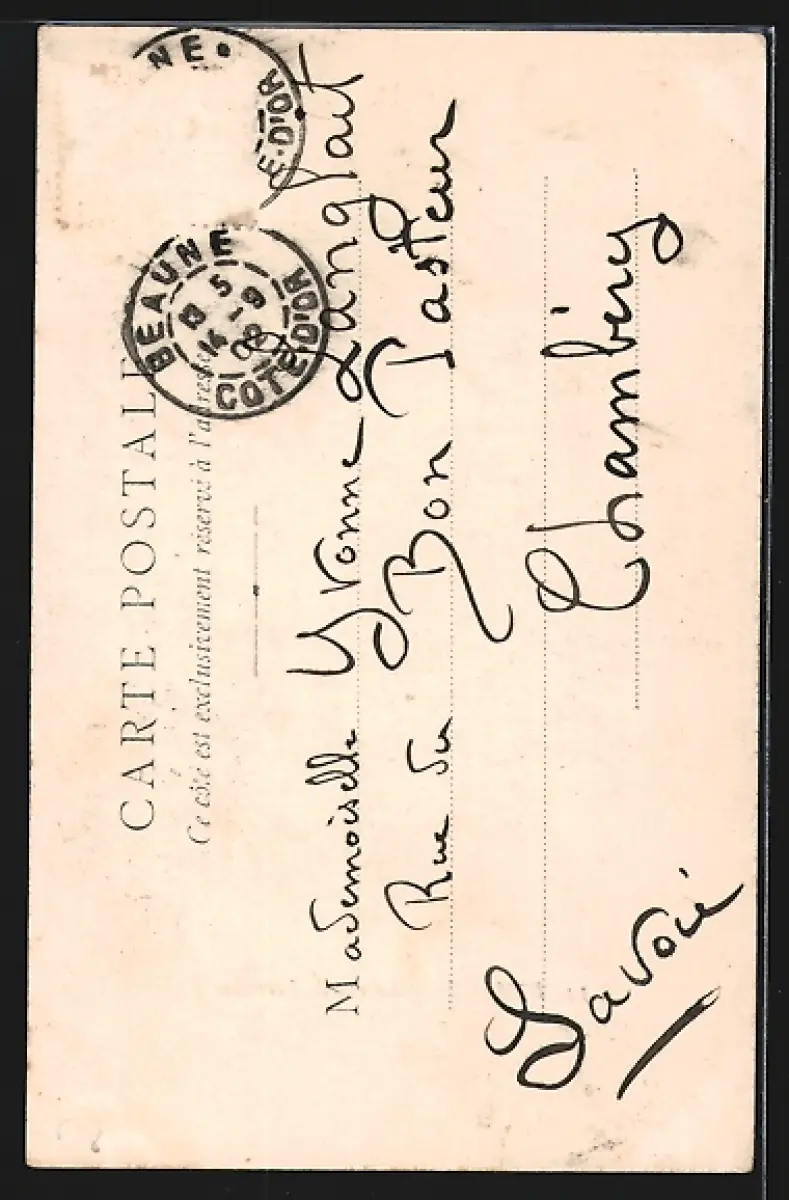 CARTE POSTALE
Ce côté est exclusivement réservé à l'adresse
NE
E-D'OR
BEAUNE
13 5
14 -9
COTE-D'OR
Mademoiselle Yvonne Langlait
Rue du Bon Pasteur
Chambéry
Savoie